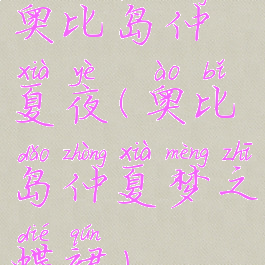 奥比岛仲
xià yè ào bǐ
夏夜(奥比
dǎo zhòng xià mèng zhī
岛仲夏梦之
dié qún
蝶裙)